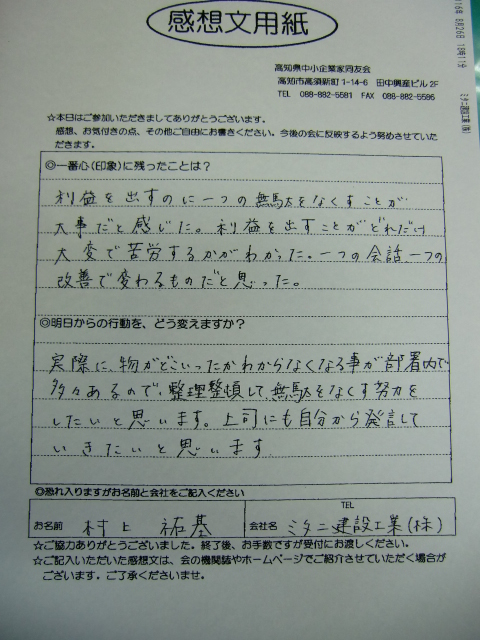 感想文用紙
16年 8月26日 13時11分 ミタニ建設工業(株)
高知県中小企業家同友会
高知市高須新町1-14-6 田中興産ビル2F
TEL 088-882-5581 FAX 088-882-5586
☆本日はご参加いただきましてありがとうございます。
感想、お気付きの点、その他ご自由にお書きください。今後の会に反映するよう努めさせていた
だきます。
◎一番心(印象)に残ったことは?
利益を出すのに一つの無駄をなくすことが
大事だと感じた。利益を出すことがどれだけ
大変で苦労するかがわかった。一つの会話、一つの
改善で変わるものだと思った。
◎明日からの行動を、どう変えますか?
実際に、物がどこいったかわからなくなる事が部署内で
多々あるので、整理整頓して、無駄をなくす努力を
したいと思います。上司にも自分から発言して
いきたいと思います
◎恐れ入りますがお名前と会社をご記入ください
TEL
お名前 村上 祐基 会社名 ミタニ建設工業(株)
☆ご協力ありがとうございました。終了後、お手数ですが受付にお渡しください。
☆ご記入いただいた感想文は、会の機関誌やホームページでご紹介させていただく場合が
ございます。ご了承くださいませ。